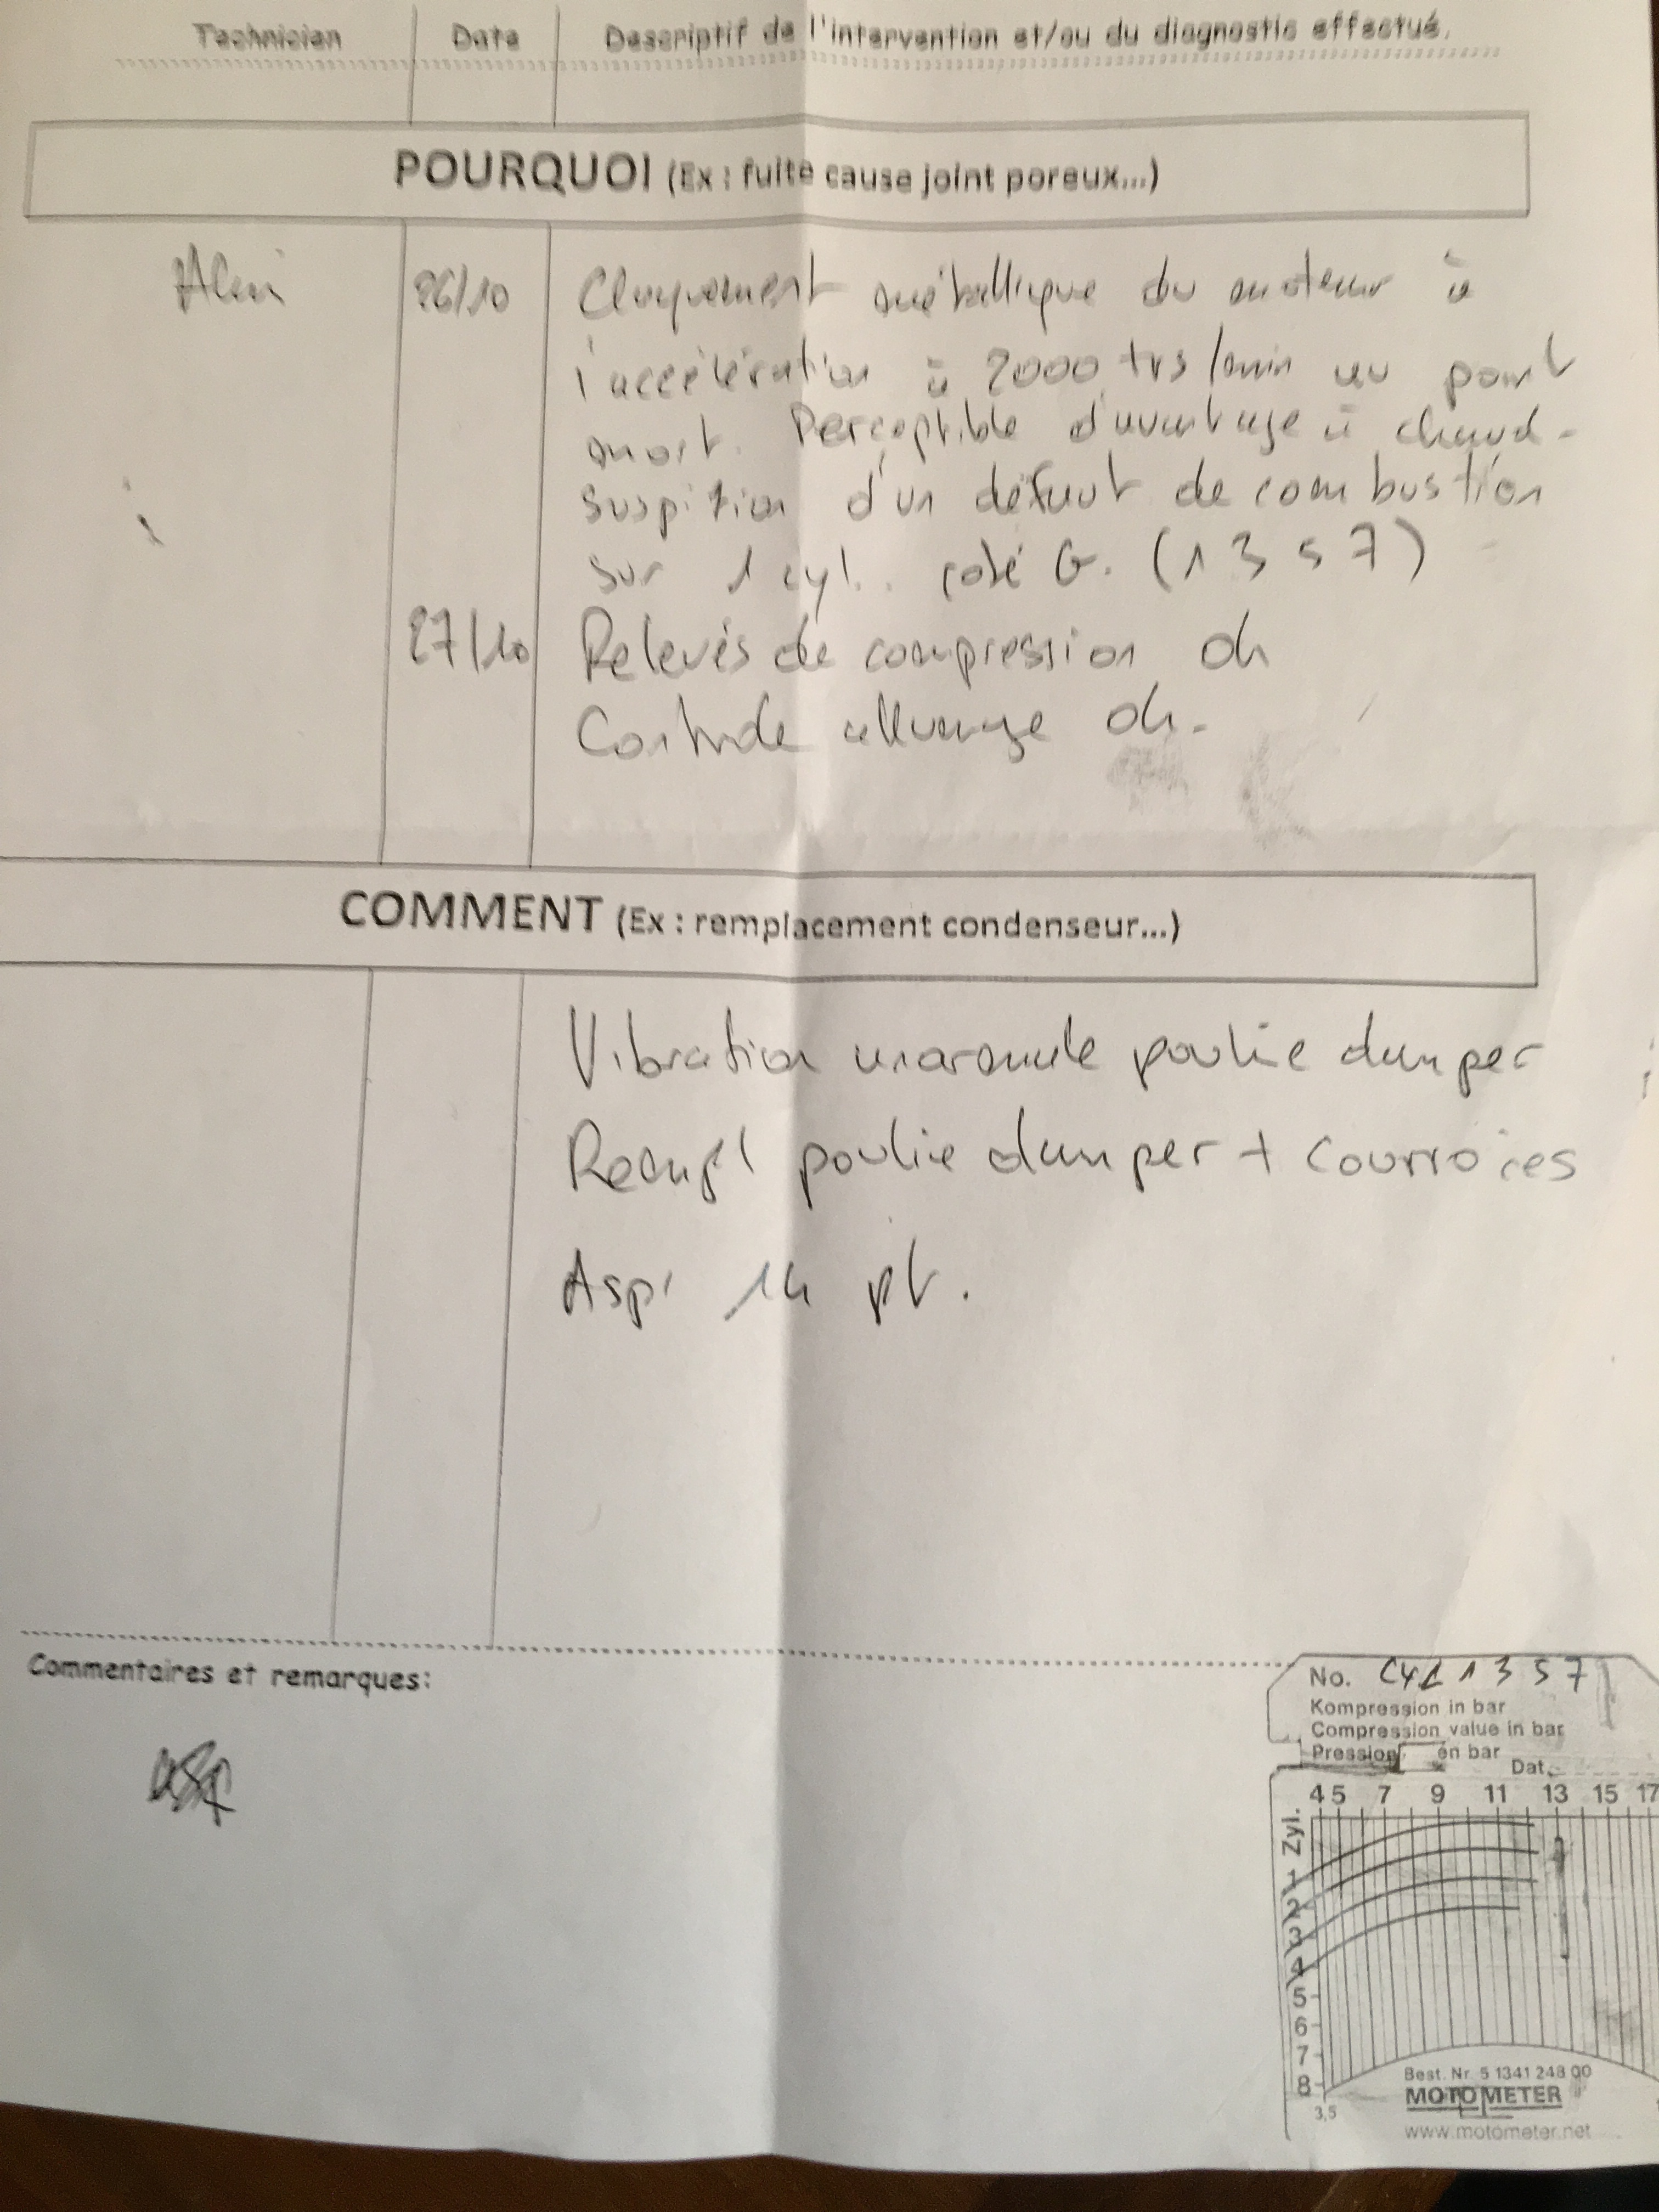 Technicien Date Descriptif de l'intervention et/ou du diagnostic effectué.
POURQUOI (Ex : fuite cause joint poreux...)
26/10 Claquement métallique du moteur à
l'accélération à 2000 trs/min au point
mort. Perceptible d'avantage à chaud.
Suspition d'un défaut de combustion
sur 1 cyl. coté G. (1 3 5 7)
27/10 Relevés de compression Ok
Controle allumage Ok.
COMMENT (Ex : remplacement condenseur...)
Vibration anormale poulie damper
Rempl poulie damper + courroies
Aspi 14 pt.
Commentaires et remarques:
No. CYL 1 3 5 7
Kompression in bar
Compression value in bar
Pression en bar
Dat.
4 5 7 9 11 13 15 17
Zyl.
1
2
3
4
5
6
7
8
3,5
Best. Nr. 5 1341 248 00
MOTOMETER
www.motometer.net